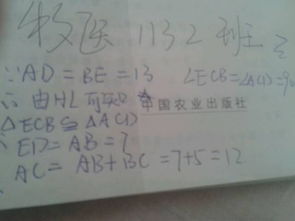 牧医1132班
∵AD=BE=13 ∠ECB=∠ACD=90
∴由HL可知
中国农业出版社
△ECB≌△ACD
∴ED=AB=7
AC=AB+BC=7+5=12